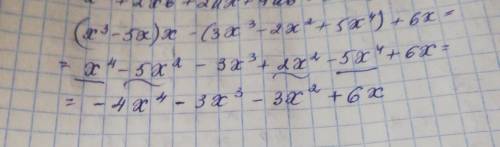 (x³ - 5x)x - (3x³ - 2x² + 5x⁴) + 6x =
= x⁴ - 5x² - 3x³ + 2x² - 5x⁴ + 6x =
= - 4x⁴ - 3x³ - 3x² + 6x